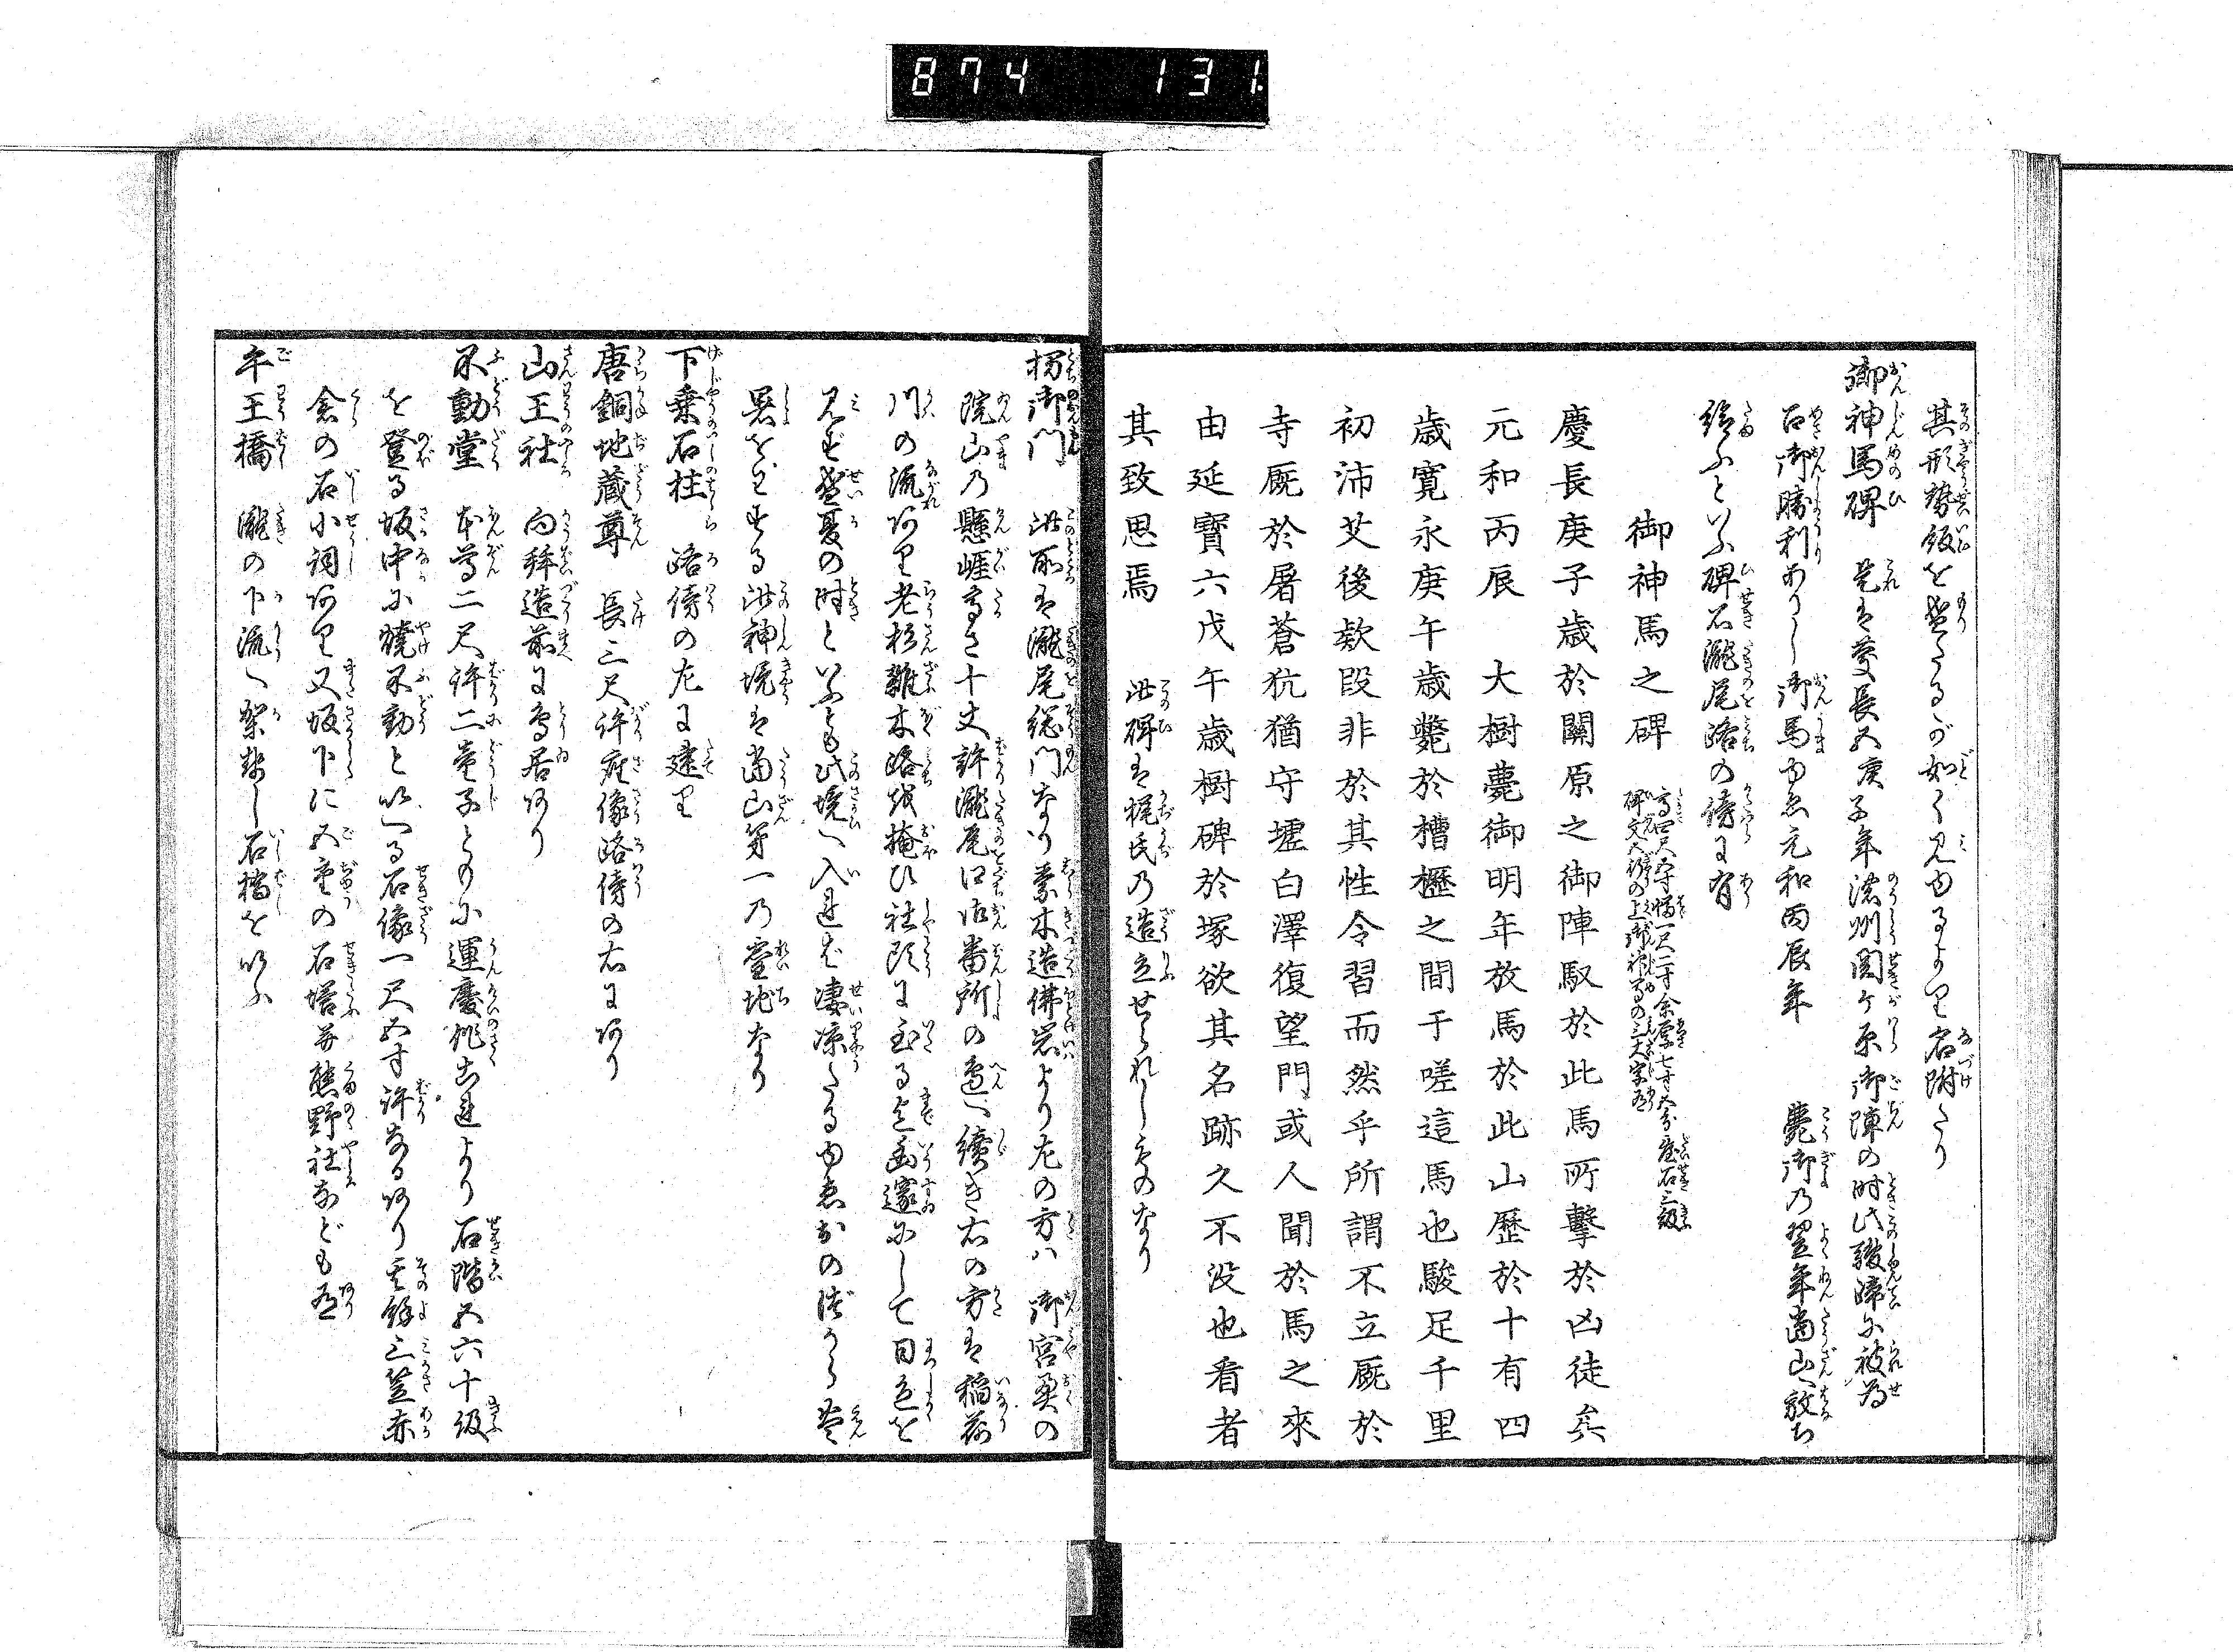 874 131
其形勢飯を盛たるが如く見ゆるより名附たり
御神馬碑 是は慶長五庚子年濃州関ケ原御陣の時此駿蹄に被為
召御勝利ありし御馬ゆゑ元和丙辰年 薨御乃翌年當山へ放ち
給ふといふ碑石瀧尾路の傍に有
御神馬之碑 高四尺五寸幅一尺二寸余厚七寸五分臺石三級
慶長庚子歳於關原之御陣馭於此馬所擊於凶徒矣
元和丙辰 大樹薨御明年放馬於此山歷於十有四
歳寬永庚午歳斃於槽櫪之間于嗟這馬也駿足千里
初沛艾後欵段非於其性令習而然乎所謂不立厩於
寺厩於屠蒼犺猶守壚白澤復望門或人聞於馬之來
由延寶六戊午歳樹碑於塚欲其名跡久不没也看者
其致思焉 此碑は梶氏乃造立せられしものなり
御門 此所は瀧尾総門なり素木造佛岩より左の方ハ 御宮奥の
院山乃懸崖高さ十丈許瀧尾口御番所の邉へ續き右の方は稲荷
川の流あり老杉雜木路を掩ひ社頭に到る迄幽邃にして日色を
見ず盛夏の時といふとも此境へ入れば凄凉たるゆゑおのづから
暑をわする此神境は當山第一の靈地なり
下乗石柱 路傍の左に建り
唐銅地蔵尊 長三尺許座像路傍の右にあり
山王社 向拜造前に鳥居あり
不動堂 本尊二尺許二童子ともに運慶作これより石階五六十級
を登る坂中に燒不動といへる石像一尺五寸許なるあり其餘三笠
の石小祠あり又坂下に五重の石塔并熊野社なども有
午王橋 瀧の下流へ架せし石橋をいふ